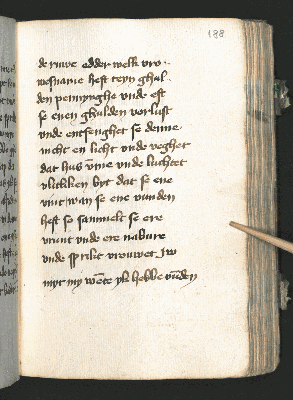 188
de ruwe edder welk vro
wesname heft teyn ghul
den pennynghe vnde est
se enen ghulden vorlust
vnde entfenghet se denne
nicht en licht vnde veghet
dat hus vmme vnde luchtet
vlitliken byt dat se ene
vint wan se ene vunden
heft so sammelt se ere
vrunt vnde ere nabure
vnde sprikt vrouwet Jw
myt my wente yk hebbe vunden